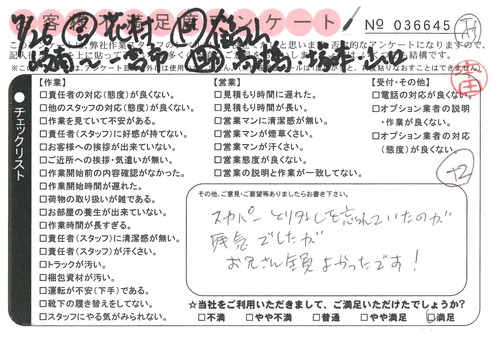 お客様満足度アンケート
No 036645
【作業】
□責任者の対応(態度)が良くない。
□他のスタッフの対応(態度)が良くない。
□作業を見ていて不安がある。
□責任者(スタッフ)に好感が持てない。
□お客様への挨拶が出来ていない。
□ご近所への挨拶・気遣いが無い。
□作業開始前の内容確認がなかった。
□作業開始時間が遅れた。
□荷物の取り扱いが雑である。
□お部屋の養生が出来ていない。
□作業時間が長すぎる。
□責任者(スタッフ)に清潔感が無い。
□責任者(スタッフ)が汗くさい。
□トラックが汚い。
□梱包資材が汚い。
□運転が不安(下手)である。
□靴下の履き替えをしてない。
□スタッフにやる気がみられない。
【営業】
□見積もり時間に遅れた。
□見積もり時間が長い。
□営業マンに清潔感が無い。
□営業マンが煙草くさい。
□営業マンが汗くさい。
□営業態度が良くない。
□営業の説明と作業が一致してない。
【受付・その他】
□電話の対応が良くない。
□オプション業者の説明
・作業が良くない。
□オプション業者の対応
(態度)が良くない。
チェックリスト
その他、ご意見・ご要望等ありましたらお書き下さい。
スカパーとり外しを忘れていたのが
残念でしたが
お兄さん全員よかったです!
+2
☆当社をご利用いただきまして、ご満足いただけたでしょうか?
□不満 □やや不満 □普通 □やや満足 □満足